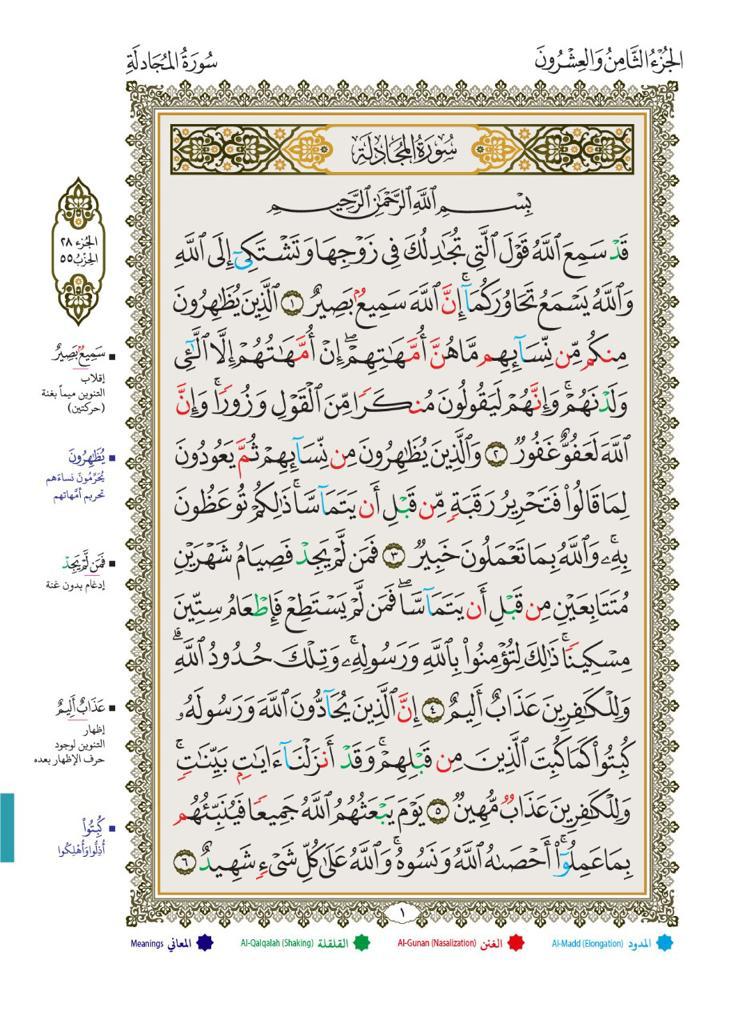 الجُزْءُ الثَّامِنُ وَالعِشْرُونَ
سُورَةُ المُجَادلَةِ
سُورَةُ المُجَادلَةِ
بِسْمِ ٱللَّهِ ٱلرَّحْمَٰنِ ٱلرَّحِيمِ
قَدْ سَمِعَ ٱللَّهُ قَوْلَ ٱلَّتِى تُجَٰدِلُكَ فِى زَوْجِهَا وَتَشْتَكِىٓ إِلَى ٱللَّهِ
وَٱللَّهُ يَسْمَعُ تَحَاوُرَكُمَآ ۚ إِنَّ ٱللَّهَ سَمِيعٌۢ بَصِيرٌ ١ ٱلَّذِينَ يُظَٰهِرُونَ
مِنكُم مِّن نِّسَآئِهِم مَّا هُنَّ أُمَّهَٰتِهِمْ ۖ إِنْ أُمَّهَٰتُهُمْ إِلَّا ٱلَّٰٓـِٔى
وَلَدْنَهُمْ ۚ وَإِنَّهُمْ لَيَقُولُونَ مُنكَرًا مِّنَ ٱلْقَوْلِ وَزُورًا ۚ وَإِنَّ
ٱللَّهَ لَعَفُوٌّ غَفُورٌ ٢ وَٱلَّذِينَ يُظَٰهِرُونَ مِن نِّسَآئِهِمْ ثُمَّ يَعُودُونَ
لِمَا قَالُوا۟ فَتَحْرِيرُ رَقَبَةٍ مِّن قَبْلِ أَن يَتَمَآسَّا ۚ ذَٰلِكُمْ تُوعَظُونَ
بِهِۦ ۚ وَٱللَّهُ بِمَا تَعْمَلُونَ خَبِيرٌ ٣ فَمَن لَّمْ يَجِدْ فَصِيَامُ شَهْرَيْنِ
مُتَتَابِعَيْنِ مِن قَبْلِ أَن يَتَمَآسَّا ۖ فَمَن لَّمْ يَسْتَطِعْ فَإِطْعَامُ سِتِّينَ
مِسْكِينًا ۚ ذَٰلِكَ لِتُؤْمِنُوا۟ بِٱللَّهِ وَرَسُولِهِۦ ۚ وَتِلْكَ حُدُودُ ٱللَّهِ ۗ
وَلِلْكَٰفِرِينَ عَذَابٌ أَلِيمٌ ٤ إِنَّ ٱلَّذِينَ يُحَآدُّونَ ٱللَّهَ وَرَسُولَهُۥ
كُبِتُوا۟ كَمَا كُبِتَ ٱلَّذِينَ مِن قَبْلِهِمْ ۚ وَقَدْ أَنزَلْنَآ ءَايَٰتٍۭ بَيِّنَٰتٍ ۚ
وَلِلْكَٰفِرِينَ عَذَابٌ مُّهِينٌ ٥ يَوْمَ يَبْعَثُهُمُ ٱللَّهُ جَمِيعًا فَيُنَبِّئُهُم
بِمَا عَمِلُوٓا۟ ۚ أَحْصَىٰهُ ٱللَّهُ وَنَسُوهُ ۚ وَٱللَّهُ عَلَىٰ كُلِّ شَىْءٍ شَهِيدٌ ٦
الجُزء ٢٨
الحِزْبُ ٥٥
سَمِيعٌۢ بَصِيرٌ
إقلاب
التنوين ميماً بغنة
(حركتين)
يُظَٰهِرُونَ
يُحَرِّمُونَ نساءَهم
تحريم أمَّهاتهم
فَمَن لَّمْ يَجِدْ
إدغام بدون غنة
عَذَابٌ أَلِيمٌ
إظهار
التنوين لوجود
حرف الإظهار بعده
كُبِتُوا۟
أُذِلُّوا وَأُهْلِكُوا
١
المدود Al-Madd (Elongation)
الغنن Al-Gunan (Nasalization)
القلقلة Al-Qalqalah (Shaking)
المعاني Meanings